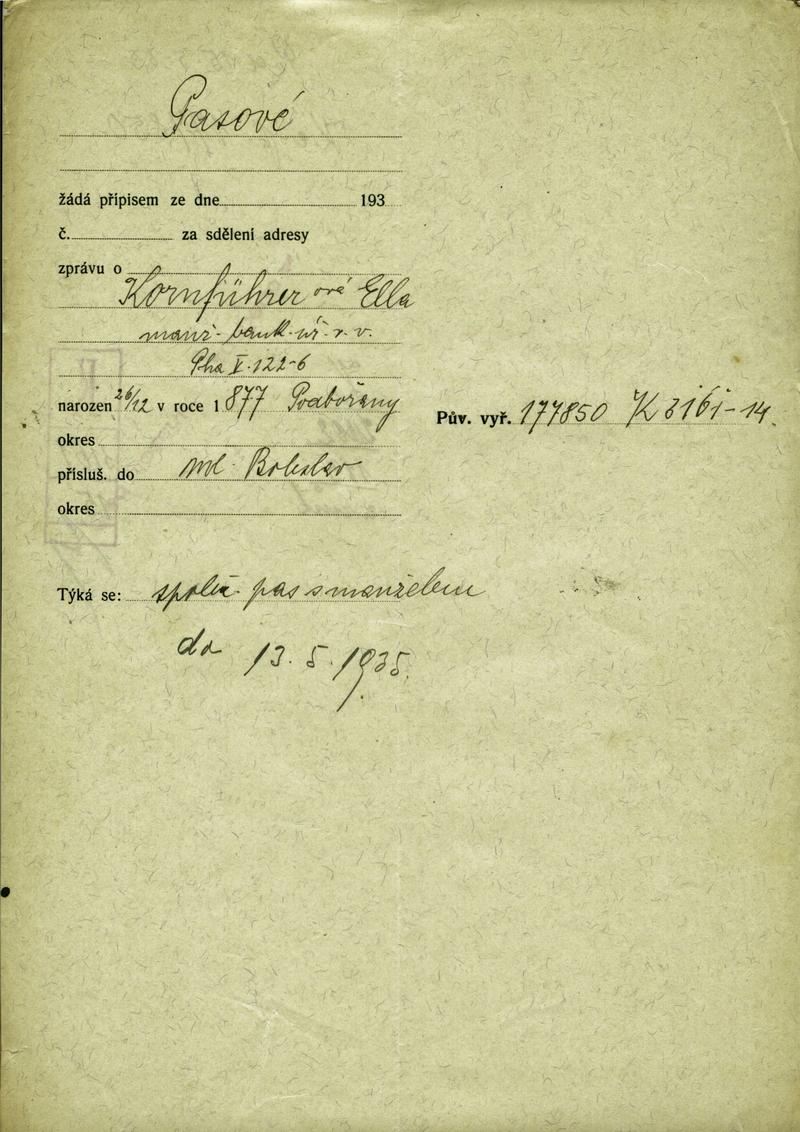 Pasové
žádá přípisem ze dne 193
č. za sdělení adresy
zprávu o
Kornführer ová Ella
manž. bank. úř. v. v.
Pha V. 122-6
narozen 26/12 v roce 1877 Podbořany
Pův. vyř. 177850 K 3161-14.
okres
přísluš. do Ml. Boleslav
okres
Týká se: spolu pas s manželem
do 13. 5. 1935.